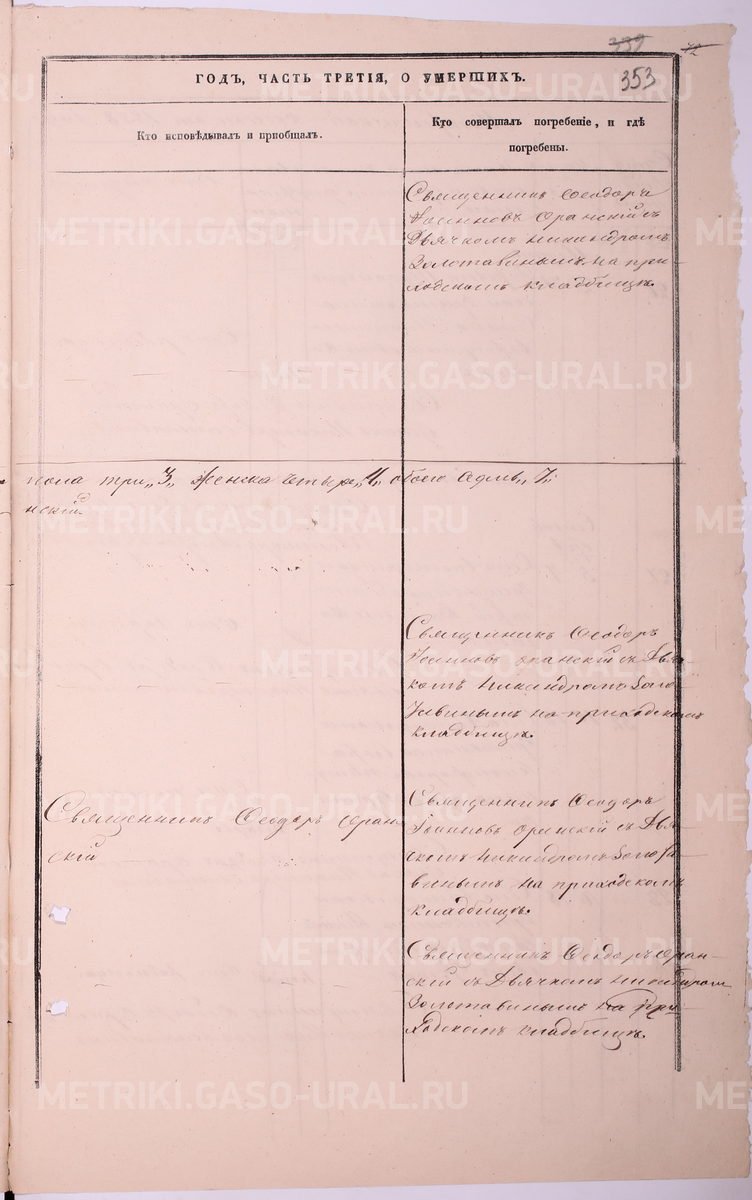 339
353
ГОДЪ, ЧАСТЬ ТРЕТІЯ, О УМЕРШИХЪ.
Кто исповѣдывалъ и пріобщалъ.
Кто совершалъ погребеніе, и гдѣ
погребены.
Священникъ Ѳеодоръ
Іоанновъ Оранскій съ
Дьячкомъ Никандромъ
Золотавинымъ на при-
ходскомъ кладбищѣ.
пола три „3„ женска четыре „4„ обоего седмь „7„
нскій
Священникъ Ѳеодоръ
Іоанновъ Оранскій съ Дья-
комъ Никандромъ Золо-
тавинымъ на приходскомъ
кладбищѣ.
Священникъ Ѳеодоръ Оран-
скій
Священникъ Ѳеодоръ
Іоанновъ Оранскій съ Дья-
комъ Никандромъ Золота-
винымъ на приходскомъ
кладбищѣ.
Священникъ Ѳеодоръ Оран-
скій съ Дьячкомъ Никандромъ
Золотавинымъ на при-
ходскомъ кладбищѣ.
METRIKI.GASO-URAL.RU